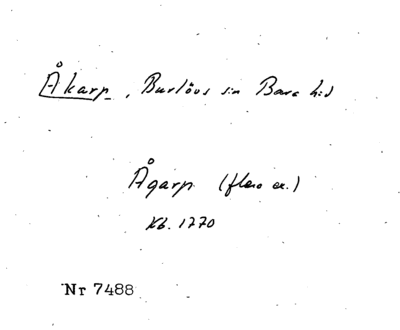 Åkarp, Burlövs sn Bara hd
Ågarp (flera ex.)
Kb. 1770
Nr 7488